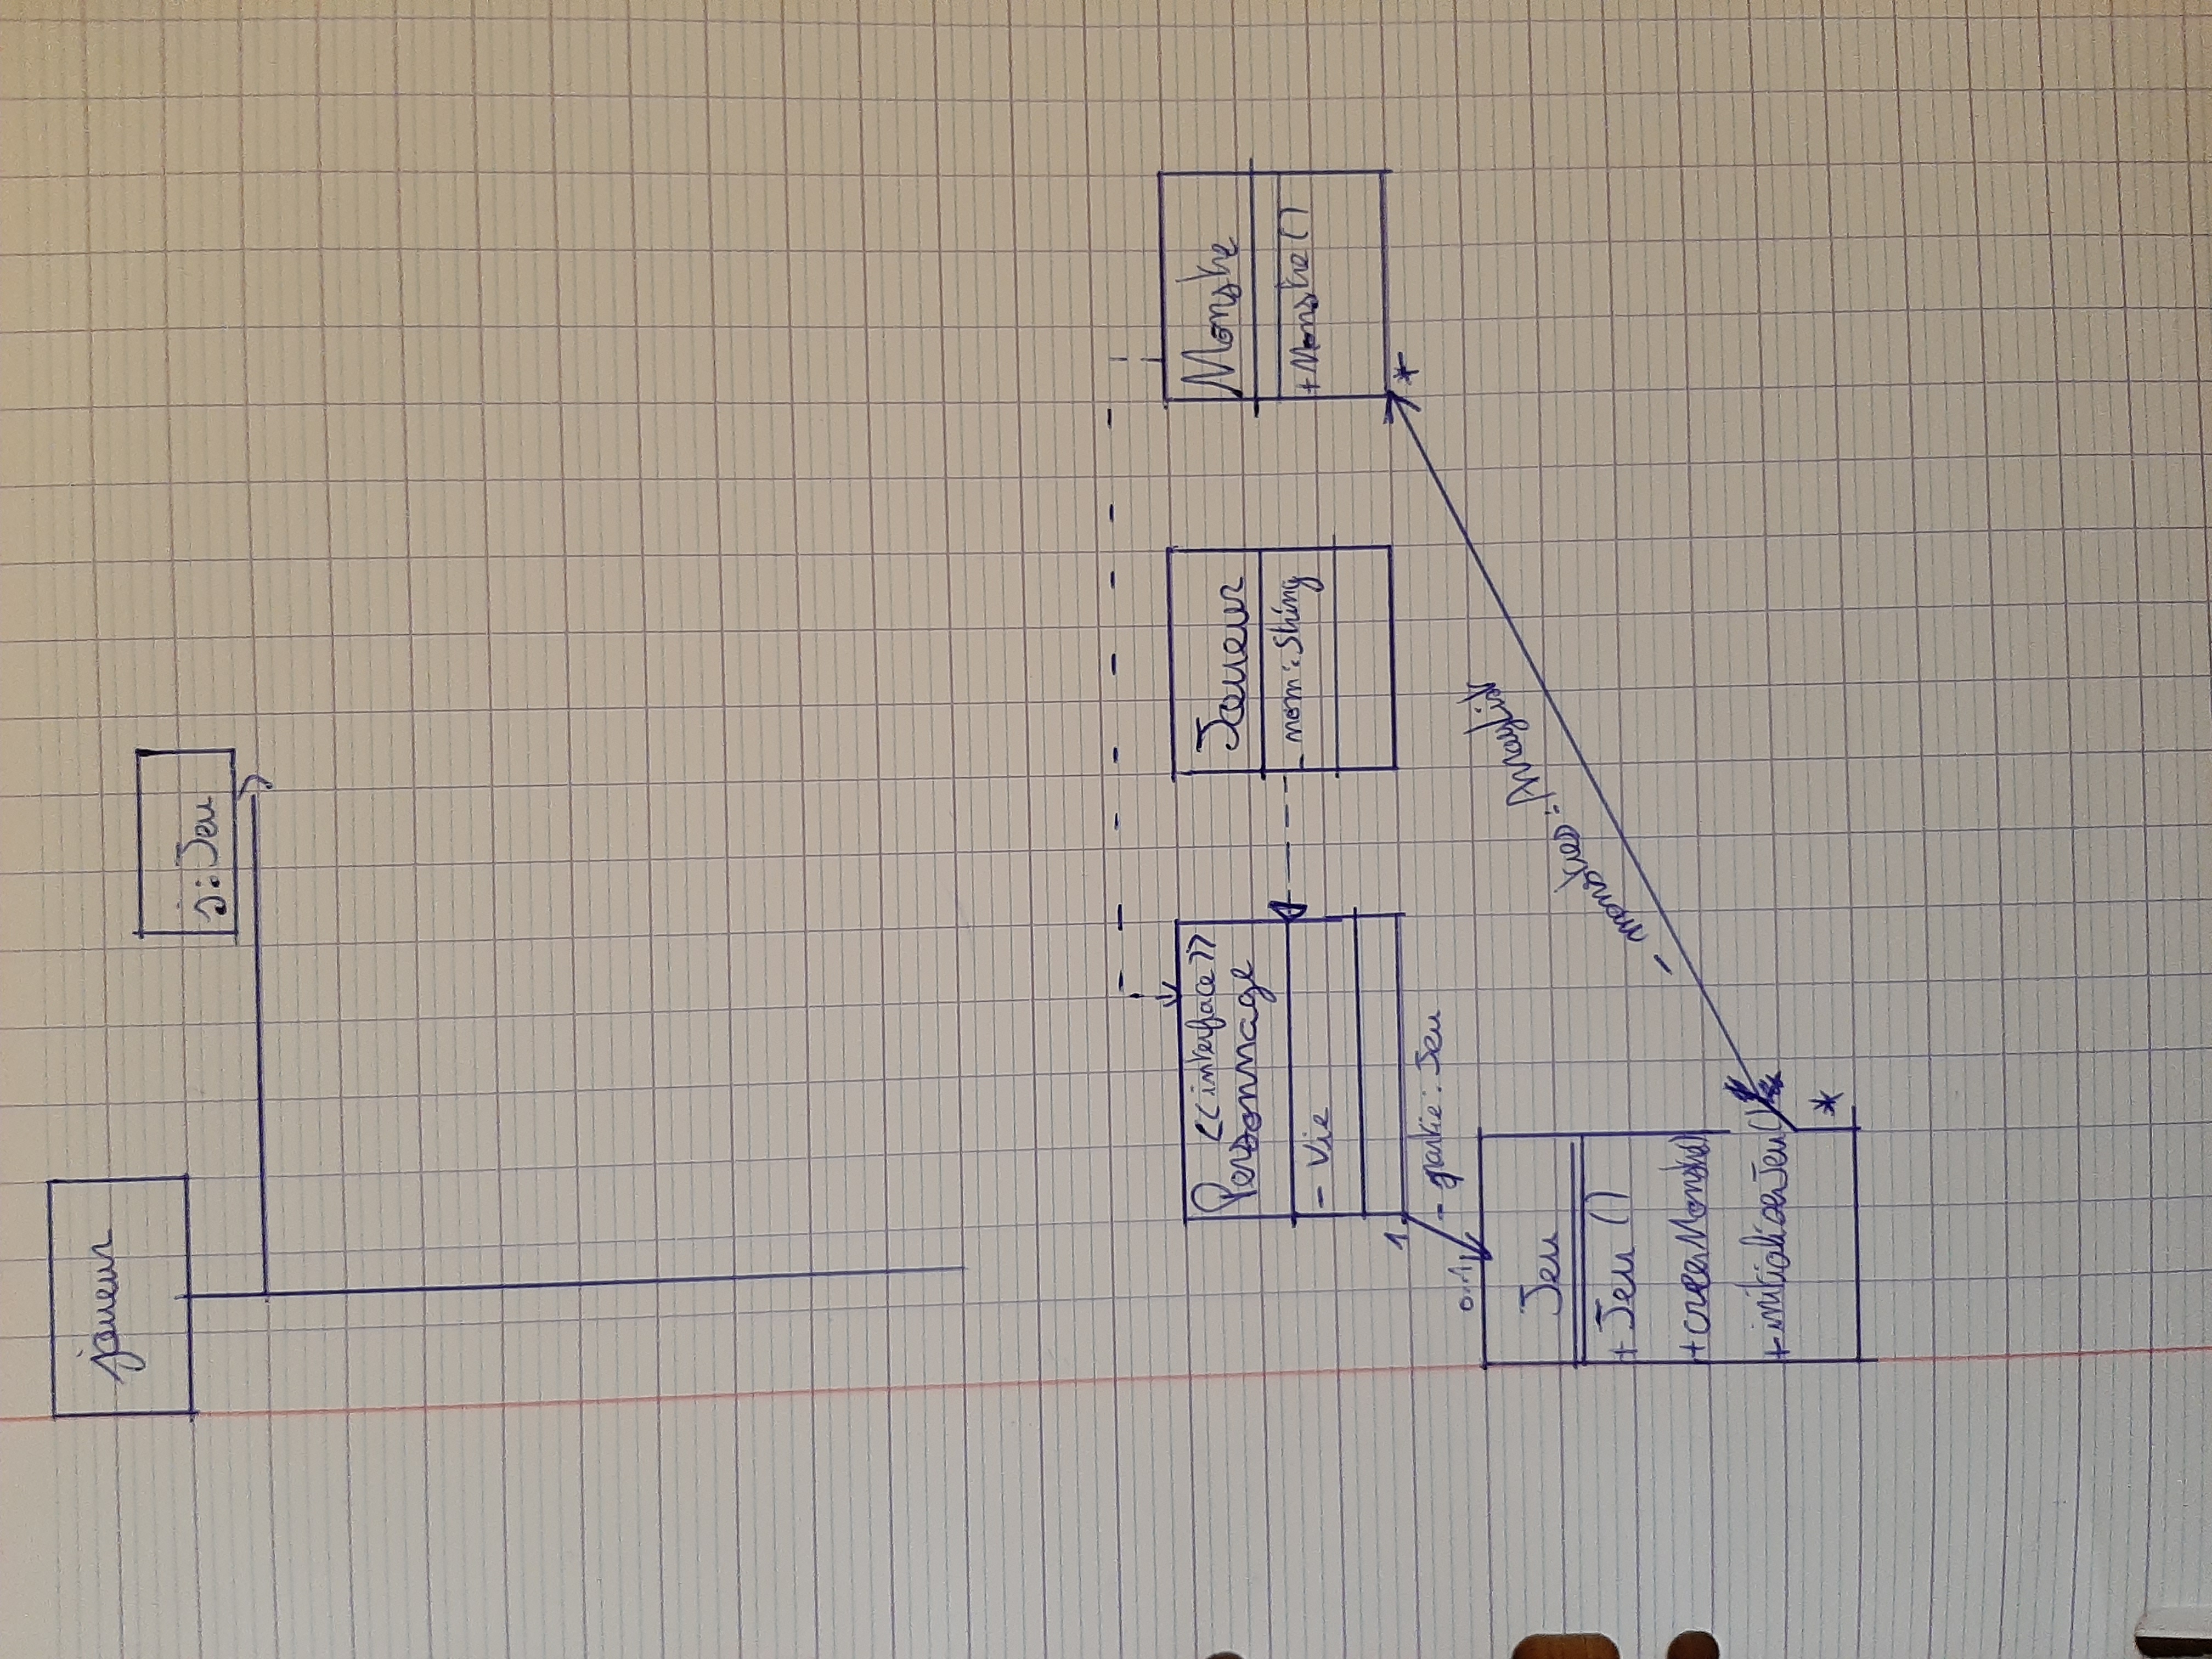 joueur
j: Jeu
<<interface>>
Personnage
- Vie
Joueur
- nom: String
Monstre
+ Monstre ()
1
- partie: Jeu
0..1
*
Jeu
+ Jeu ()
+ creerMonstre()
+ initialiserJeu()
- monstres: ArrayList
*